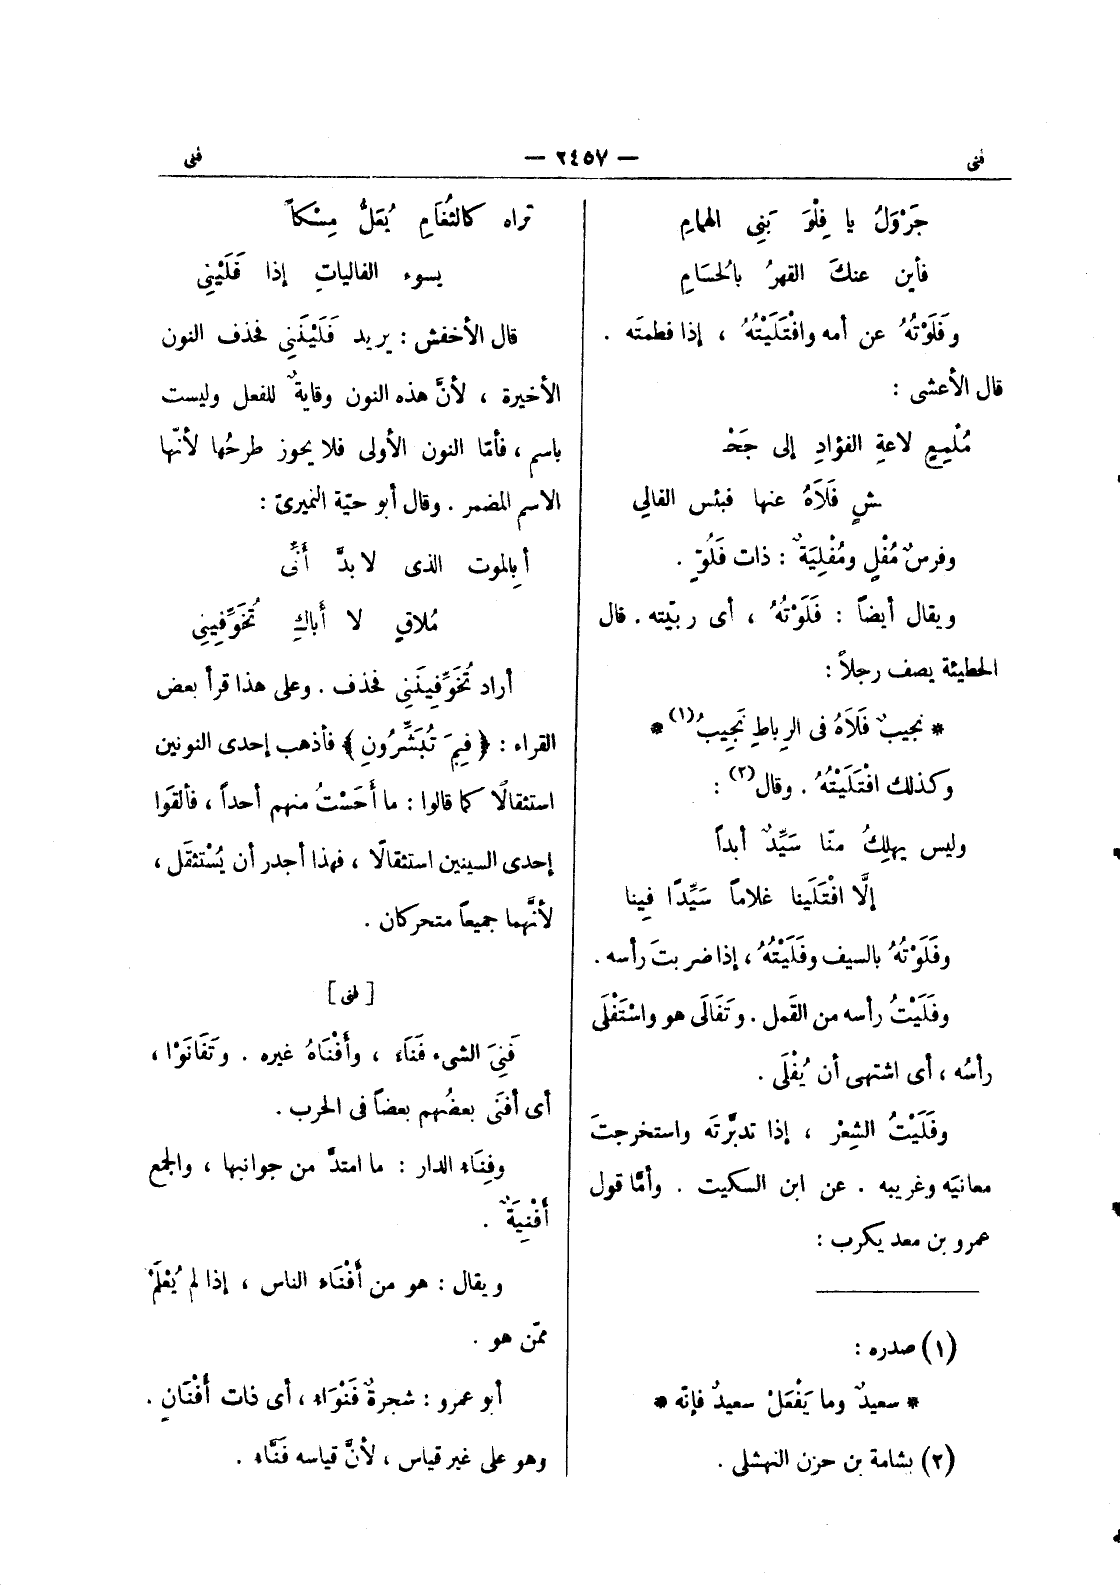 فنى — ٢٤٥٧ — فلى
جَرْوَلُ يا فِلْوَ بَنِي الهمامِ
فأين عنكَ القهرُ بالحُسَامِ
وفَلَوْتُهُ عن أمه وافْتَلَيْتُهُ ، إذا فطمتَه .
قال الأعشى :
مُلْمِعٍ لاعةِ الفؤادِ إلى جَحْـ
ـشٍ فَلَاهُ عنها فبئس الفالي
وفرسٌ مُفْلٍ ومُفْلِيَةٌ : ذات فَلُوٍّ .
ويقال أيضاً : فَلَوْتُهُ ، أى ربّيته . قال
الحطيئة يصف رجلاً :
* نجيبٌ فَلَاهُ فى الرِباطِ نَجِيبُ(١) *
وكذلك افْتَلَيْتُهُ . وقال(٢) :
وليس يهلِكُ منّا سَيِّدٌ أبداً
إلَّا افْتَلَينا غلاماً سَيِّدًا فِينا
وفَلَوْتُهُ بالسيف وفَلَيْتُهُ ، إذا ضربتَ رأسه .
وفَلَيْتُ رأسه من القَمل . وتَفَالَى هو واسْتَفْلَى
رأسُه ، أى اشتهى أن يُفْلَى .
وفَلَيْتُ الشِعْر ، إذا تدبَّرتَه واستخرجتَ
معانيَه وغريبه . عن ابن السكيت . وأمَّا قول
عمرو بن معد يكرب :
(١) صدره :
* سعيدٌ وما يَفْعَلْ سعيدٌ فإنّه *
(٢) بشامة بن حزن النهشلى .
تراه كالثُغَامِ يُعَلُّ مِسْكاً
يسوء الفالياتِ إذا فَلَيْنِي
قال الأخفش : يريد فَلَيْنَنِي فحذف النون
الأخيرة ، لأنَّ هذه النون وقايةٌ للفعل وليست
باسم ، فأمّا النون الأولى فلا يجوز طرحُها لأنّها
الاسم المضمر . وقال أبو حيّة النميرىّ :
أبِالموت الذى لا بدَّ أنّى
مُلاقٍ لا أباكِ تُخَوِّفِينِي
أراد تُخَوِّفِينَنِي فحذف . وعلى هذا قرأ بعض
القراء : ﴿ فَبِمَ تُبَشِّرُونِ ﴾ فأذهب إحدى النونين
استثقالًا كما قالوا : ما أَحَسْتُ منهم أحداً ، فألقَوا
إحدى السينين استثقالًا ، فهذا أجدر أن يُسْتثقَل ،
لأنَّهما جميعاً متحركان .
[ فنى ]
فَنِيَ الشىء فَنَاءً ، وأَفْنَاهُ غيره . وتَفَانَوْا ،
أى أفنَى بعضُهم بعضاً فى الحرب .
وفِنَاء الدار : ما امتدَّ من جوانبها ، والجمع
أَفْنِيَةٌ .
ويقال : هو من أَفْنَاء الناس ، إذا لم يُعْلَمْ
ممّن هو .
أبو عمرو : شجرةٌ فَنْوَاء ، أى ذات أَفْنَانٍ .
وهو على غير قياس ، لأنَّ قياسه فَنَّاء .